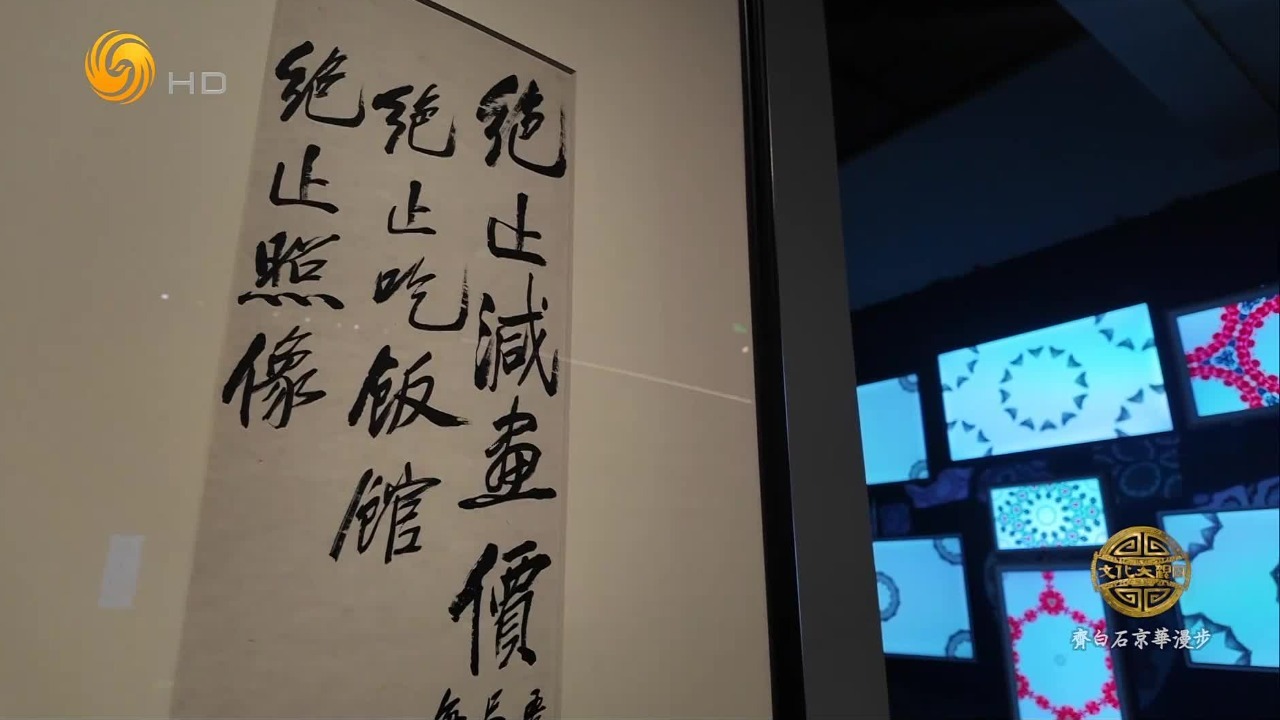 HD
絕止減畫價
絕止吃飯館
絕止照像
文化大觀園
齊白石京華漫步